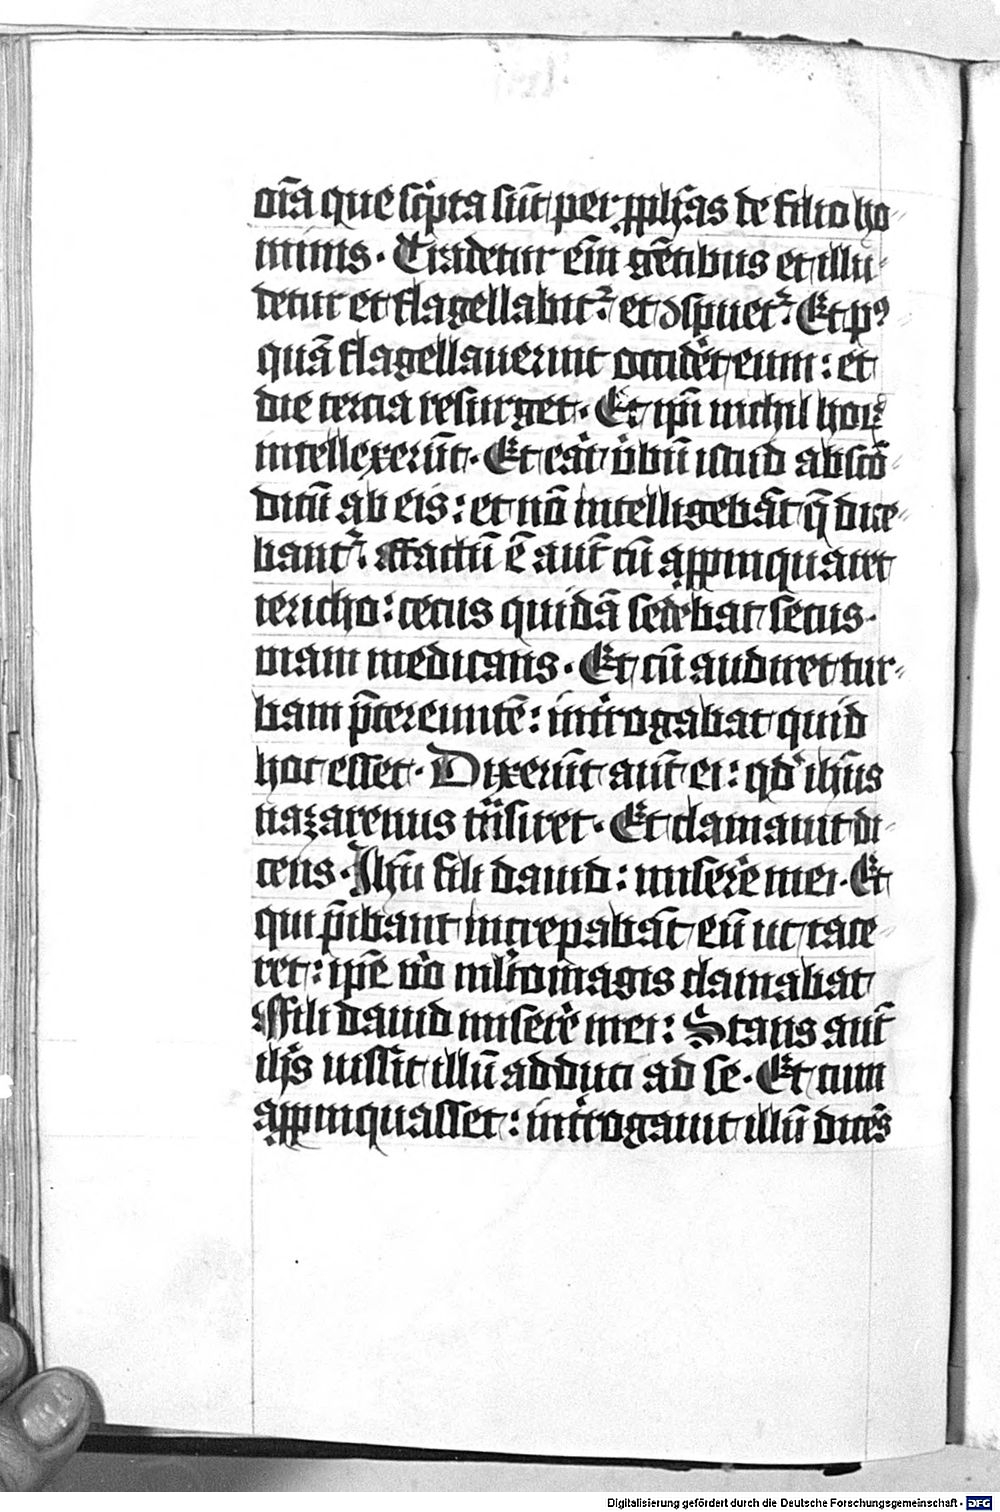 om̄a que sc̓pta sūt per ꝓph̄as de filio ho⸗
minis · Tradetur em̄ gētibus et illu⸗
detur et flagellabit᷑ : et ↄspuet᷑ · Et pꝰ⸗
quā flagellauerunt occidēt eum : et
die tercia resurget · Et ipi̅ nichil hoꝝ
intellexerūt · Et eāt v̓bū istud absco̅⸗
ditū ab eis : et nō intelligebāt q̄ dice⸗
bant᷑ · ffactū ē aut̄ cū appinquaret
iericho : cecus quidā sedebat secus ·
viam medicans · Et cū audiret tur⸗
bam p̄tereuntē : int̓rogabat quid
hoc esset · Dixerūt aut̄ ei : qd̓ ih̄us
nazarenus tn̄siret · Et clamauit di⸗
cens · Jh̄u fili dauid : misere̓ mei · Et
qui p̄ibant increpabāt eū ut tace⸗
ret : ip̄e v̓o mlt̓omagis clamabat
ffili dauid misere̓ mei : Stans aut̄
ih̄s iussit illū adduci ad se · Et cum
appinquasset : int̓rogauit illū dicēs
Digitalisierung gefördert durch die Deutsche Forschungsgemeinschaft - DFG